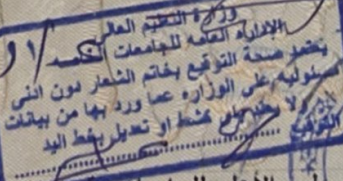 وزارة التعليم العالي
الإدارة العامة للجامعات الخاصة
يعتمد صحة التوقيع بخاتم الشعار دون ادنى
مسئولية على الوزاره عما ورد بها من بيانات
ولا يعتد بأي كشط او تعديل بخط اليد
التوقيع